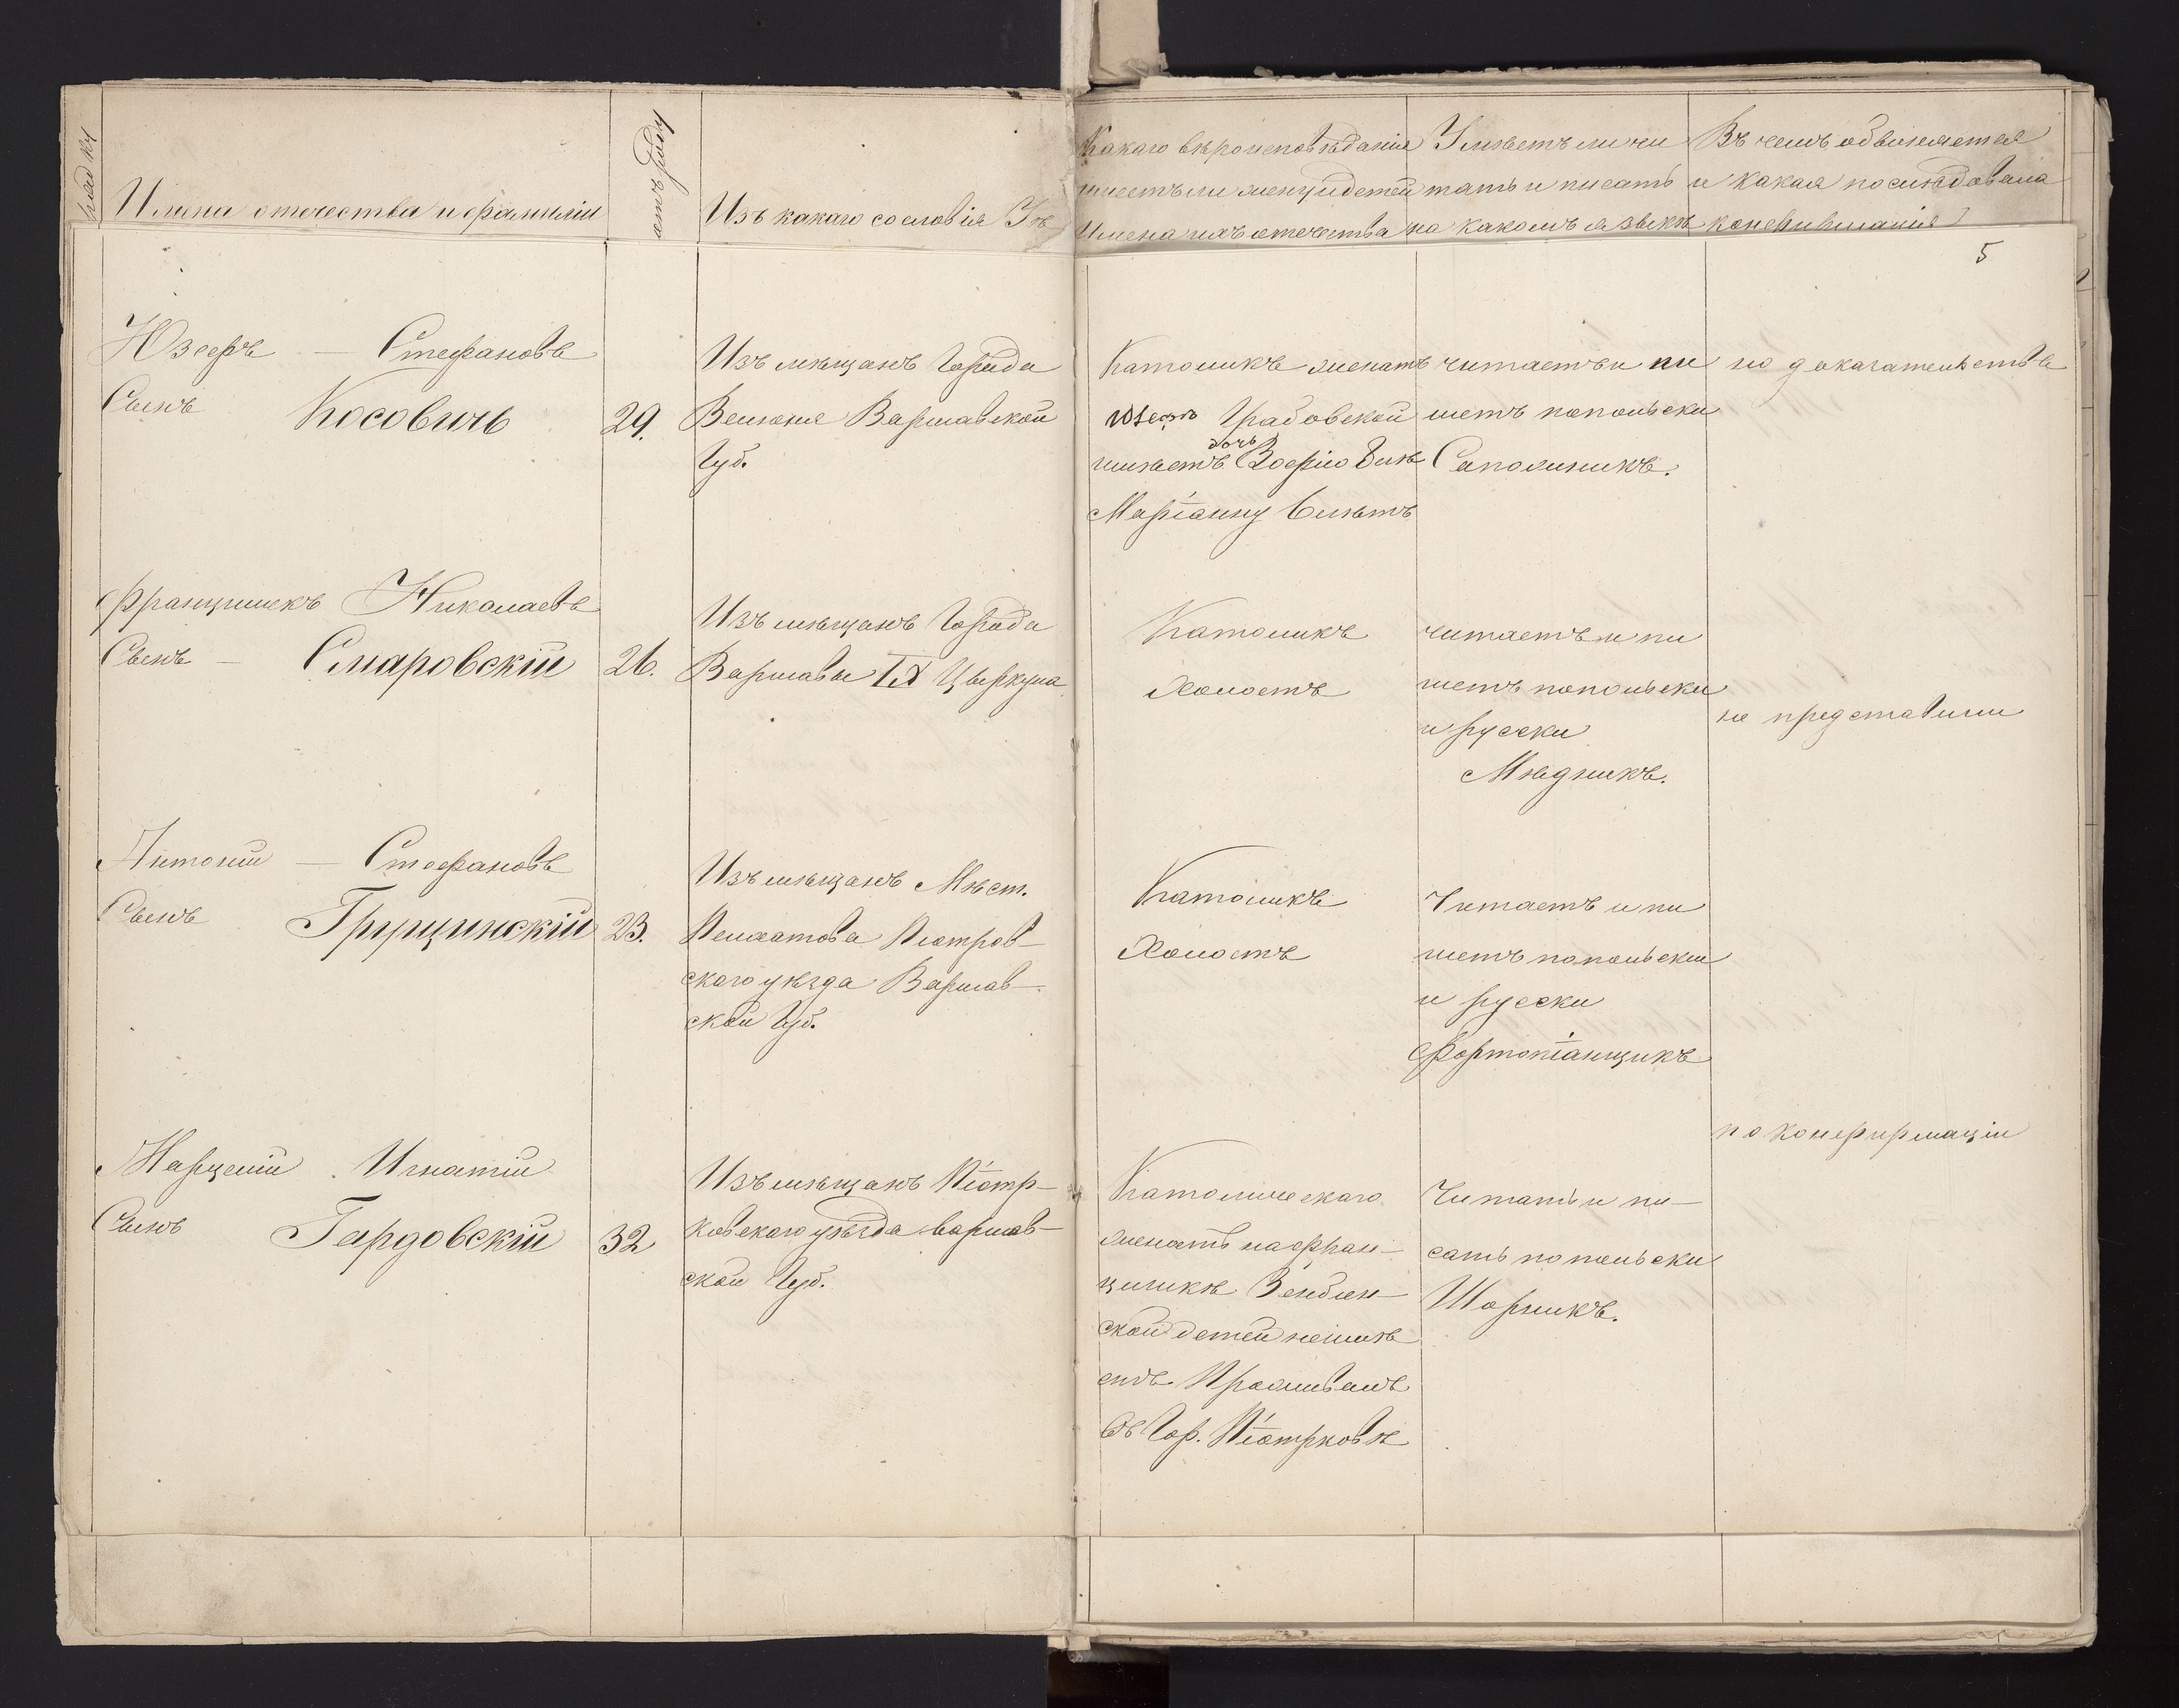 Имена отечества и фамилии
отъ роду
Изъ какаго сословія
Какаго вѣроисповѣданія
имеетъ ли жену и детей
Имена ихъ отечества
Умѣетъ ли чи
тать и писать
на какомъ языкѣ
Въ чемъ обвиняется
и какая последовала
конфирмація
5
Юзефъ — Стефановъ
Сынъ Косовичъ
29.
Изъ мѣщанъ Города
Велюня Варшавской
Губ.
Католикъ женатъ
Юзефъ Грабовской
дочь
имѣетъ Зофію
Маріанну 6 лѣтъ
читаетъ и пи
шетъ попольски
Сапожникъ.
по доказательствъ
Францишекъ Николаевъ
Сынъ — Смаровскій
26.
Изъ мѣщанъ Города
Варшавы IX Цыркула
Католикъ
Холостъ
читаетъ и пи
шетъ попольски
и русски
Мѣдникъ.
не представили
Антоній — Стефановъ
Сынъ Грущинскій
23.
Изъ мѣщанъ Мѣст.
Піотров-
скаго уѣзда Варшав-
ской Губ.
Католикъ
Холостъ
Читаетъ и пи
шетъ попольски
и русски
Фортопіанщикъ
по конфирмаціи
Марцелій Игнатій
Сынъ Гардовскій
32
Изъ мѣщанъ Піотр-
ковскаго уѣзда Варшав-
ской Губ.
Католическаго
женатъ на Фран-
цишкѣ
ской детей неимѣ
етъ Проживалъ
въ Гор. Піотрковѣ
Читать и пи-
сать попольски
Шорникъ.